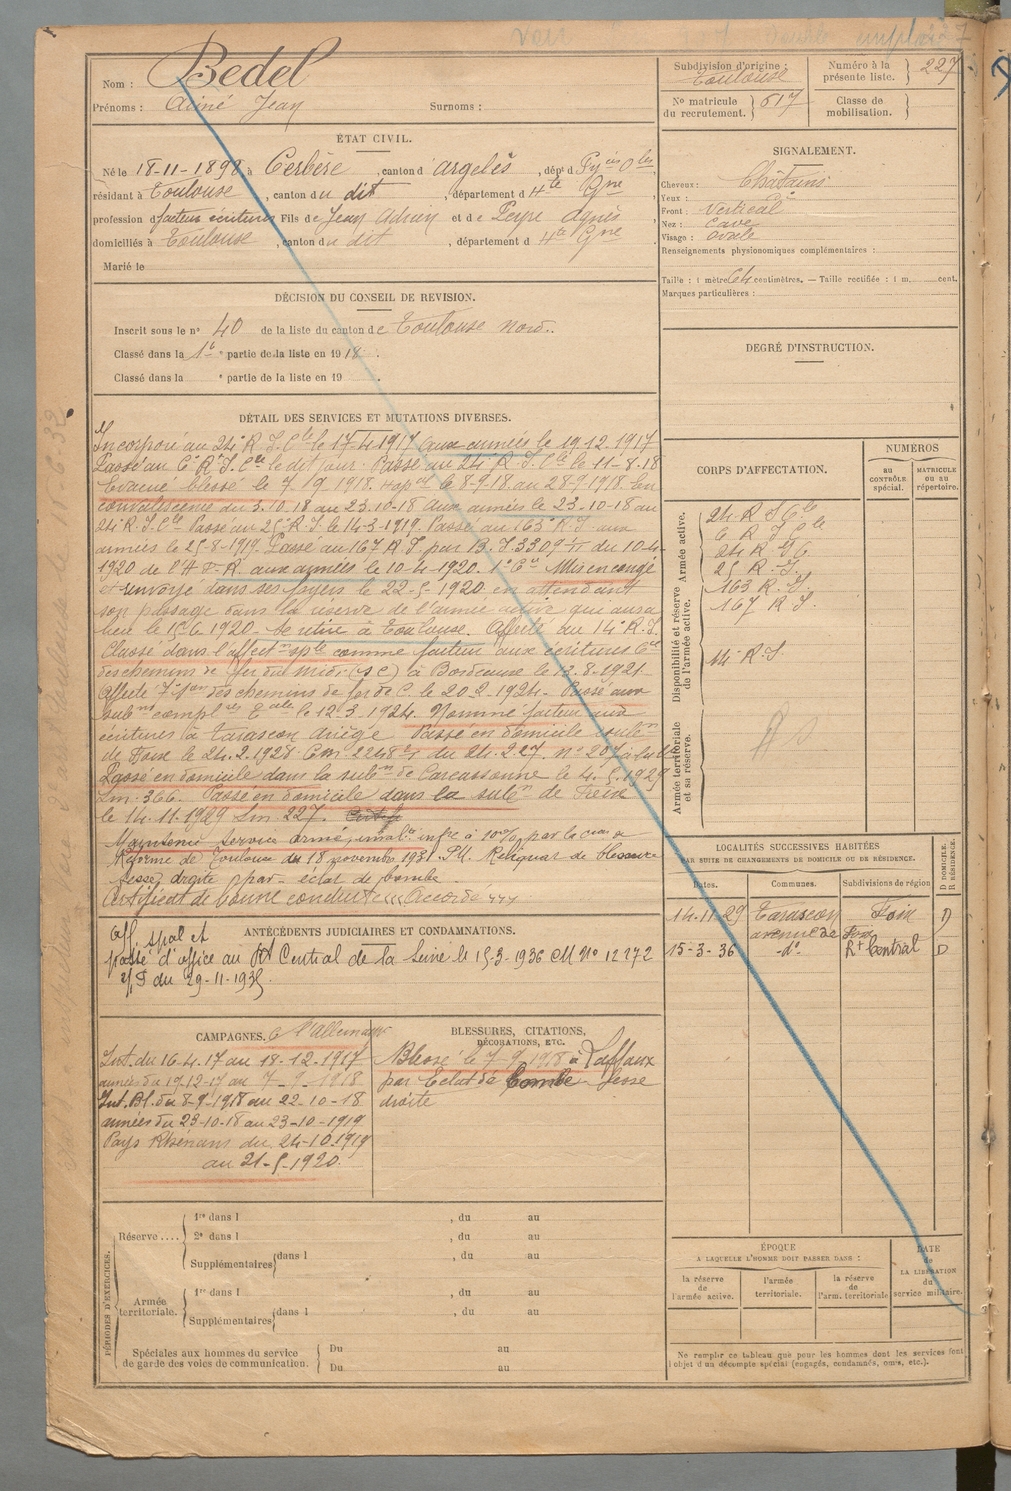 Nom : Bedel
Prénoms : Aimé Jean Surnoms :
Subdivision d'origine : Toulouse
Numéro à la présente liste. 227
No matricule du recrutement. 617
Classe de mobilisation.
ÉTAT CIVIL.
Né le 18-11-1898 à Cerbère, canton d'argelès, dépt d Pyées Oles
résidant à Toulouse, canton du dit, département d Hte Gne
profession d facteur écritures Fils de Jean Adrien et de Peyre Agnès
domiciliés à Toulouse, canton du dit, département d Hte Gne
Marié le
SIGNALEMENT.
Cheveux : Châtains
Yeux :
Front : Vertical
Nez : Cave
Visage : ovale
Renseignements physionomiques complémentaires :
Taille : 1 mètre 64 centimètres. — Taille rectifiée : 1 m. cent.
Marques particulières :
DÉCISION DU CONSEIL DE REVISION.
Inscrit sous le no 40 de la liste du canton de Toulouse Nord.
Classé dans la 1e partie de la liste en 1918.
Classé dans la e partie de la liste en 19 .
DEGRÉ D'INSTRUCTION.
DÉTAIL DES SERVICES ET MUTATIONS DIVERSES.
Incorporé au 24e R.I.Cle le 17-4-1917 aux armées le 19.12.1917
Passé au 6e R.I.Cle le dit jour. Passé au 24e R.I.Cle le 11-8-18
Evacué blessé le 7/9 1918. Hopal 8-9-18 au 28-9-1918. En
convalescence du 3.10.18 au 23-10-18 aux armées le 23-10-18 au
24e R.I.Cle Passé au 25e R.I. le 14-3-1919. Passé au 163e R.I aux
armées le 25-8-1919. Passé au 167 R.I. par B.I. 3309 du 10-4-
1920 de l'H.-R. aux armées le 10-4-1920. Mis en congé
et envoyé dans ses foyers le 22-5-1920 en attendant
son passage dans la réserve de l'armée active qui aura
lieu le 15.6.1920. Se retire à Toulouse. Affecté au 14e R.I.
Classé dans l'affecton sple comme facteur aux écritures Cie
des chemins de fer du midi (S C) à Bordeaux le 12.8.1921
Affecté 7e son des chemins de fer de C. le 20.2.1924. Passé aux
subon complres le 12-3-1924. Nommé facteur aux
écritures à Tarascon Ariège Passé en domicile subon
de Foix le 24.2.1928 Em. 2248 du 24.2.27. no 207
Passé en domicile dans la subon de Carcassonne le 4.5.1929
Em. 366. Passé en domicile dans la subon de Foix
le 14.11.1929 Em. 227.
Maintenu service armé, invalté infre à 10% par la Con de
Réforme de Toulouse du 18 novembre 1931. Pr. Reliquat de blessure
fesse droite par éclat de bombe.
Certificat de bonne conduite «« Accordé »»
CORPS D'AFFECTATION.
NUMÉROS
au CONTRÔLE spécial.
MATRICULE ou au répertoire.
Armée active.
24e R I Cle
6 R I Cle
24 R I C
25 R. I.
163 R. I
167 R I.
Disponibilité et réserve de l'armée active.
14e R.I.
Armée territoriale et sa réserve.
LOCALITÉS SUCCESSIVES HABITÉES
PAR SUITE DE CHANGEMENTS DE DOMICILE OU DE RÉSIDENCE.
Dates. Communes. Subdivisions de région D DOMICILE. R RÉSIDENCE.
14-11-29 Tarascon Foix D
avenue de Foix
15-3-36 -do- Rt Central D
ANTÉCÉDENTS JUDICIAIRES ET CONDAMNATIONS.
Aff. spal et
passé d'office au Rt Central de la Seine le 15-3-1936 CM No 12272
du 29-11-1935
CAMPAGNES. C l'allemagne
Int. du 16-4-17 au 18-12-1917
armées du 19-12-17 au 7-9-1918
Int. Bl. du 8-9-1918 au 22-10-18
armées du 23-10-18 au 23-10-1919
Pays Rhénans du 24-10-1919
au 21-5-1920.
BLESSURES, CITATIONS, DÉCORATIONS, ETC.
Blessé le 7-9-1918 à Laffaux
par Eclat de bombe fesse
droite
PÉRIODES D'EXERCICES.
Réserve ....
1re dans l , du au
2e dans l , du au
Supplémentaires dans l , du au
Armée territoriale.
1re dans l , du au
Supplémentaires dans l , du au
Spéciales aux hommes du service de garde des voies de communication.
Du au
Du au
ÉPOQUE
A LAQUELLE L'HOMME DOIT PASSER DANS :
la réserve de l'armée active.
l'armée territoriale.
la réserve de l'arm. territoriale
DATE de LA LIBÉRATION du service militaire.
Ne remplir ce tableau que pour les hommes dont les services font
l'objet d'un décompte spécial (engagés, condamnés, omis, etc.).